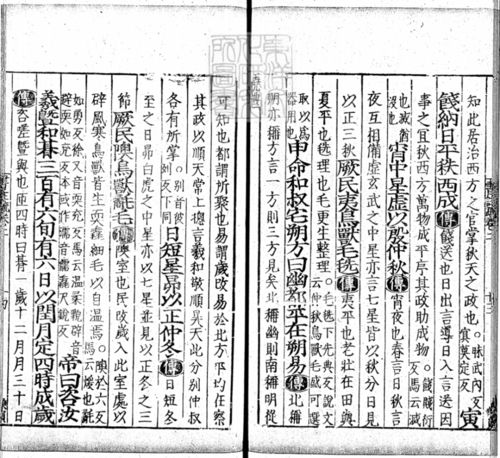 知此居治西方之官掌秋天之政也 昧武內反 寅
餞納日平秩西成傳餞送也日出言導日入言送因
事之宜秋西方萬物成平序其政助成物 餞賤衍反馬云滅
也滅猶 宵中星虛以殷仲秋傳宵夜也春言日秋言
夜互相備虛玄武之中星亦言七星皆以秋分日見
以正三秋厥民夷鳥獸毛毨傳夷平也老壯在田與
夏平也毨理也毛更生整理 毛毨下先典反說文云仲秋鳥獸毛盛可選
取以爲器用也 申命和叔宅朔方曰幽都平在朔易傳北稱
朔亦稱方言一方則三方見矣北稱幽則南稱明從
可知也都謂所聚也易謂歲改易於北方平均在察
其政以順天常上揔言羲和敬順昊天此分別仲叔
各有所掌 別音彼列反下同 日短星昴以正仲冬傳日短冬
至之日昴白虎之中星亦以七星並見以正冬之三
節厥民隩鳥獸氄毛傳隩室也民改歲入此室處以
辟風寒鳥獸皆生耎毳細毛以自溫焉 隩於六反馬云煖也氄
如勇反徐又音 帝曰咨汝
羲曁和朞三百有六旬有六日以閏月定四時成歲
傳咨嗟曁與也匝四時曰朞一歲十二月月三十日